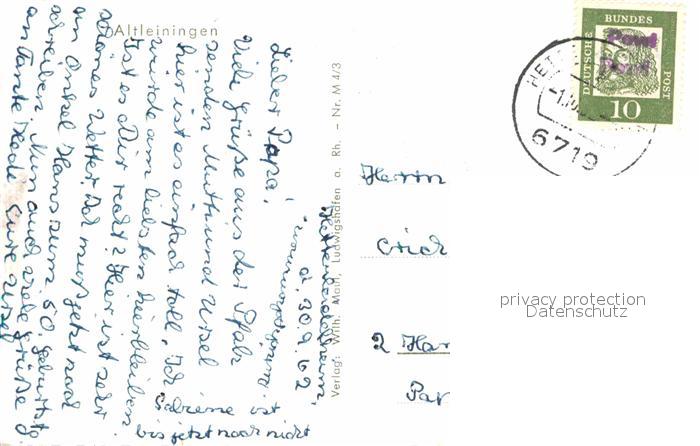 Altleiningen
Hettenleidelheim,
d. 30.9.62
Lieber Papa!
Viele Grüße aus der Pfalz
senden Mutti und Ursel
hier ist es einfach toll, Ich
würde am liebsten hierbleiben
Ist es Dir recht? Hier ist sehr
schönes Wetter. Ich muß jetzt noch
an Onkel Hans zum 50. Geburtstg
schreiben. Nun auch viele Grüße
an Tante Hedi Eure Ursel
Sabine ist
bis jetzt noch nicht
Verlag: Wilh. Mohl, Ludwigshafen a. Rh. – Nr. M 4/3
Herrn
Erich
2 Ham
Par
DEUTSCHE
BUNDES
POST
10
HET
6719
privacy protection
Datenschutz